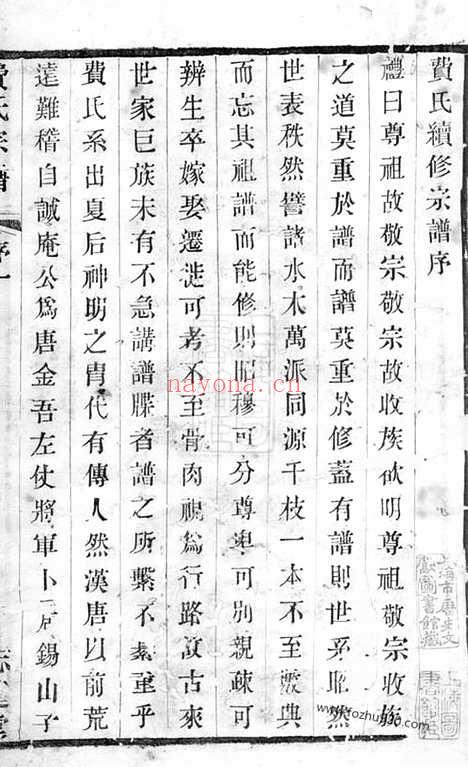 費氏續修宗譜序
禮曰尊祖故敬宗敬宗故收族欲明尊祖敬宗收族
之道莫重於譜而譜莫重於修蓋有譜則世系昭然
世表秩然譬諸水木萬派同源千枝一本不至數典
而忘其祖譜而能修則昭穆可分尊卑可別親疎可
辨生卒嫁娶遷徙可考不至骨肉視為行路故古來
世家巨族未有不急講譜牒者譜之所繫不綦重乎
費氏系出夏后神明之冑代有傳人然漢唐以前荒
遠難稽自誠庵公為唐金吾左仗將軍卜居錫山子
費氏宗譜
序一
nayona.cn
上海市歷史文
獻圖書館藏
www.fozhu900.com